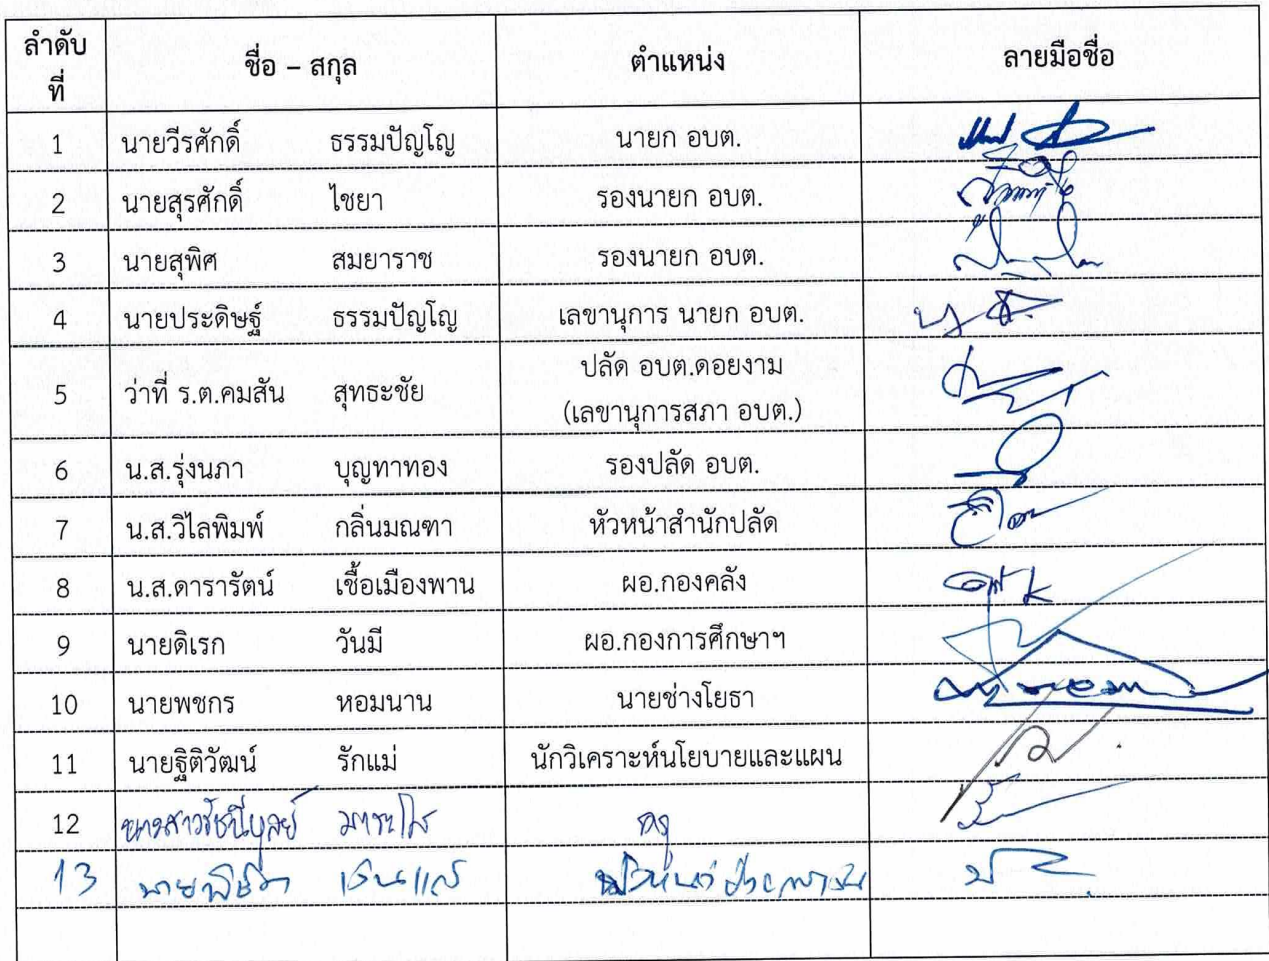 ลำดับ ชื่อ – สกุล ตำแหน่ง ลายมือชื่อ
ที่
1 นายวีรศักดิ์ ธรรมปัญโญ นายก อบต.
2 นายสุรศักดิ์ ไชยา รองนายก อบต.
3 นายสุพิศ สมยาราช รองนายก อบต.
4 นายประดิษฐ์ ธรรมปัญโญ เลขานุการ นายก อบต.
5 ว่าที่ ร.ต.คมสัน สุทธะชัย ปลัด อบต.ดอยงาม
(เลขานุการสภา อบต.)
6 น.ส.รุ่งนภา บุญทาทอง รองปลัด อบต.
7 น.ส.วิไลพิมพ์ กลิ่นมณฑา หัวหน้าสำนักปลัด
8 น.ส.ดารารัตน์ เชื้อเมืองพาน ผอ.กองคลัง
9 นายดิเรก วันมี ผอ.กองการศึกษาฯ
10 นายพชกร หอมนาน นายช่างโยธา
11 นายฐิติวัฒน์ รักแม่ นักวิเคราะห์นโยบายและแผน
12 ครู
13